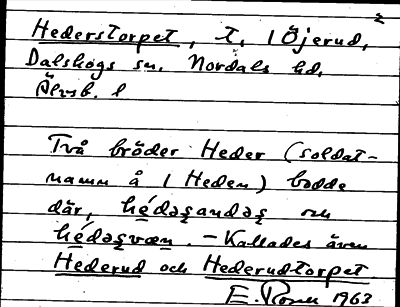 Hederstorpet, t, 1 Öjerud,
Dalskogs sn. Nordals hd,
Älvsb. l
Två bröder Heder (soldat-
namn å 1 Heden) bodde
där, hédəʂandəʂ och
hédəʂvæn. – Kallades även
Hederud och Hederudtorpet
E. 1963